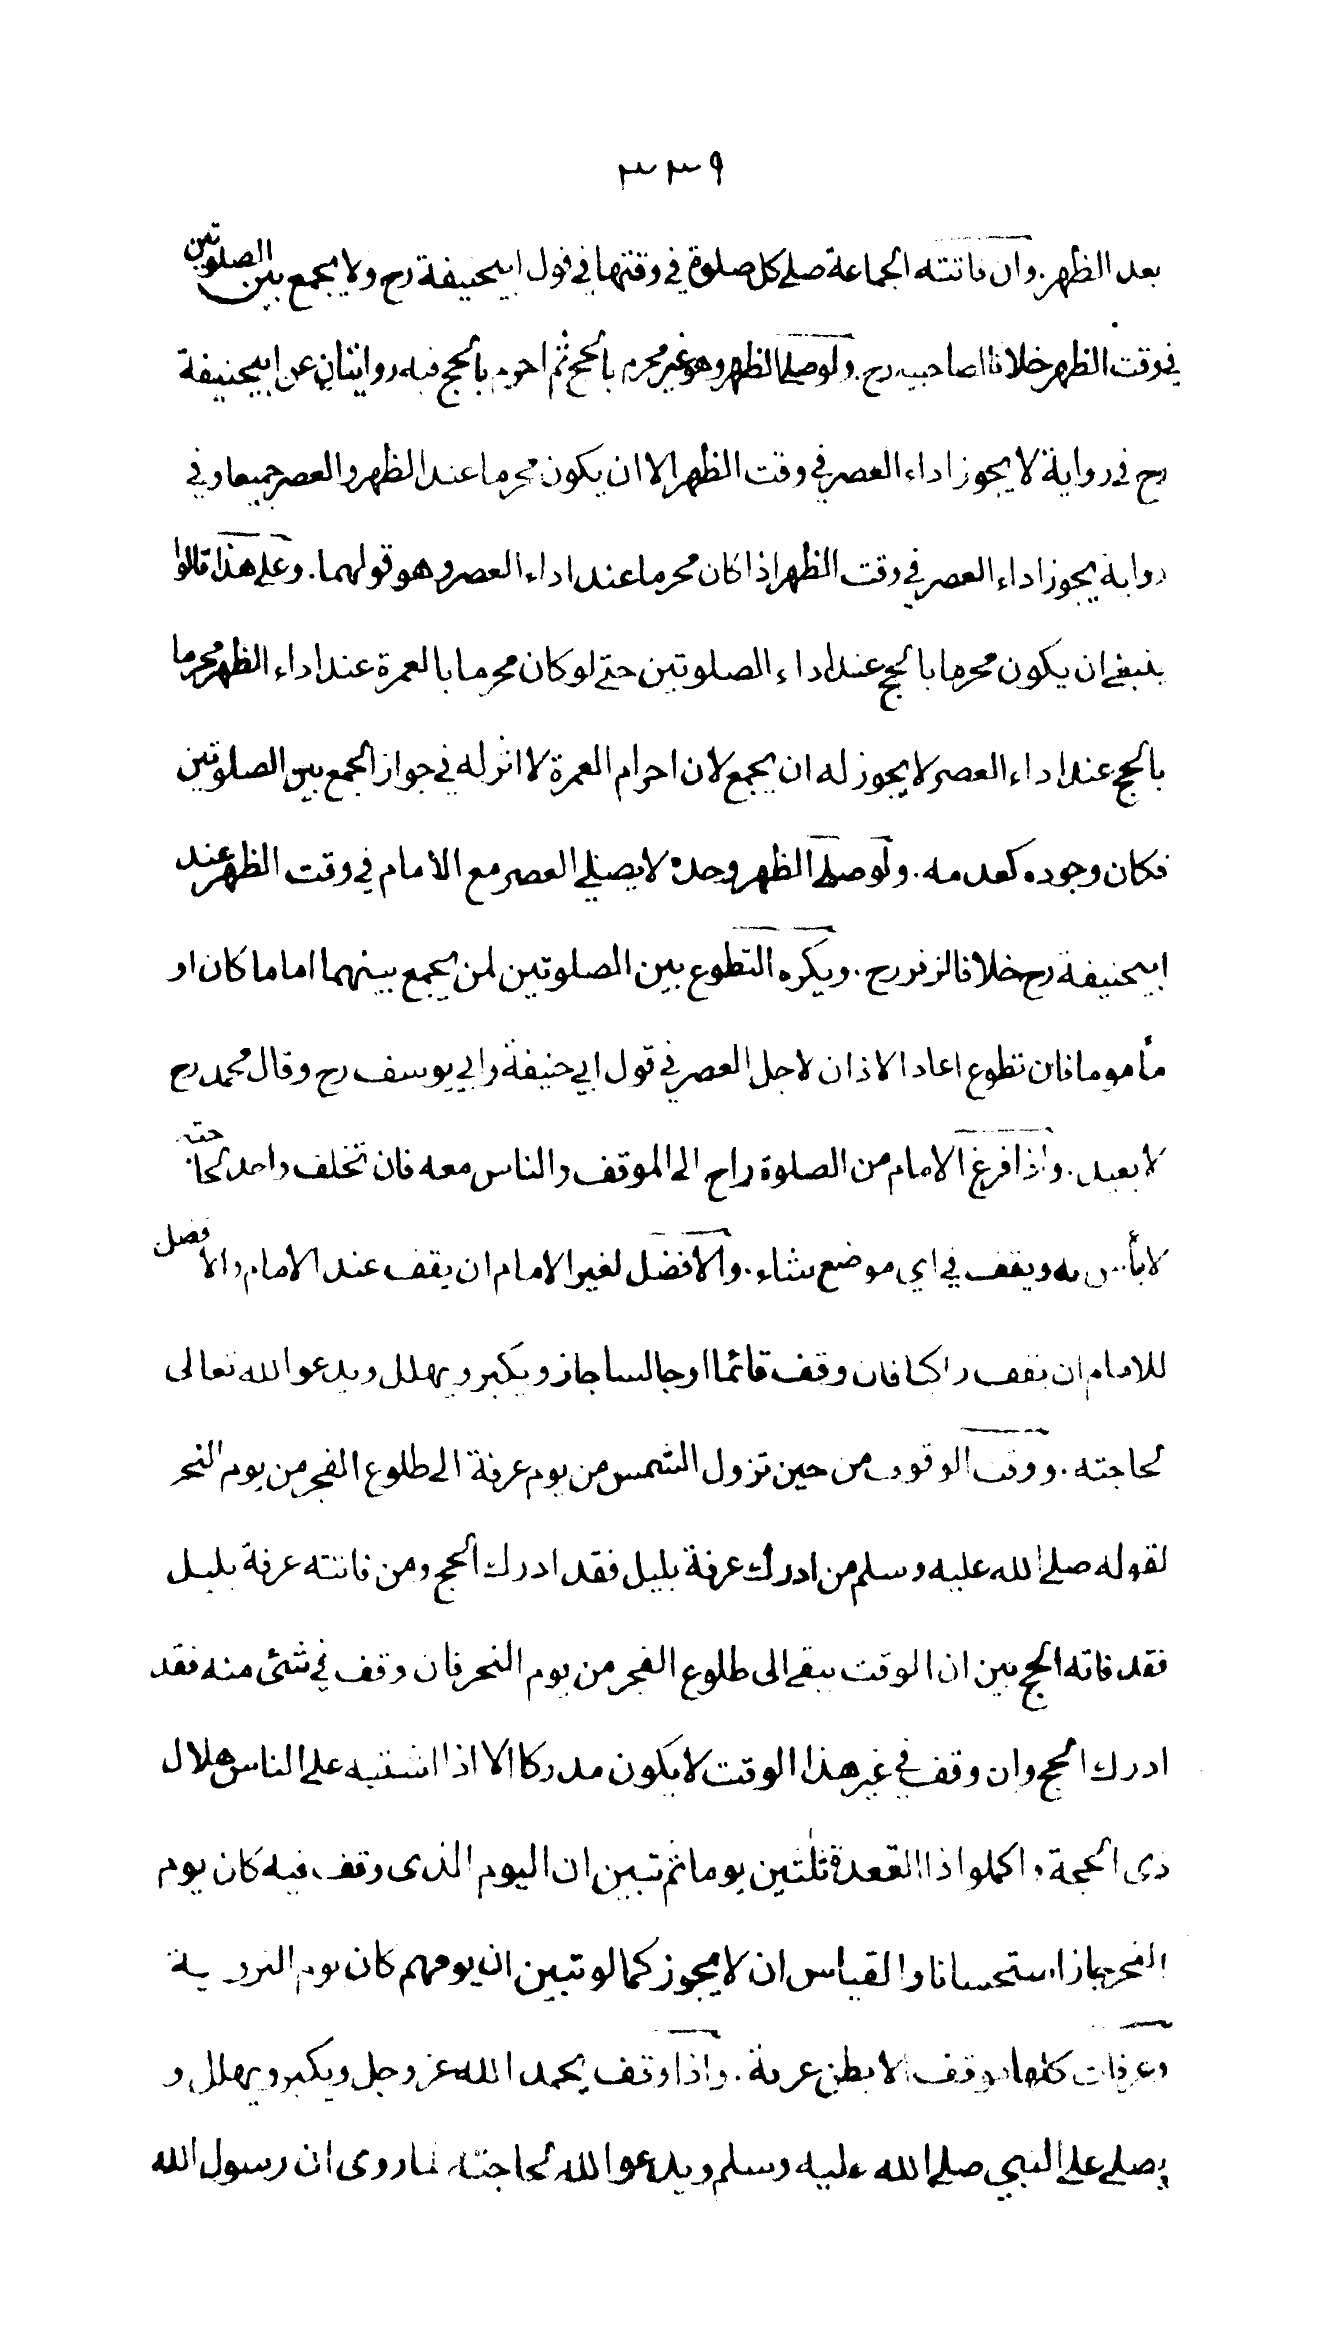 ٣٣٩
بعد الظهر. وان فاتته الجماعة صلے كل صلوة في وقتها في قول ابيحنيفة رح ولا يجمع بين الصلوتين
في وقت الظهر خلافا لصاحبيه رح. ولو صلے الظهر وهو غير محرم بالحج ثم احرم بالحج فيه روايتان عن ابيحنيفة
رح في رواية لا يجوز اداء العصر في وقت الظهر الا ان يكون محرما عند الظهر والعصر جميعا وفي
رواية يجوز اداء العصر في وقت الظهر اذا كان محرما عند اداء العصر وهو قولهما. وعلے هذا قالوا
ينبغے ان يكون محرما بالحج عند اداء الصلوتين حتے لو كان محرما بالعمرة عند اداء الظهر محرما
بالحج عند اداء العصر لا يجوز له ان يجمع لان احرام العمرة لا اثر له في جواز الجمع بين الصلوتين
فكان وجوده كعدمه. ولو صلے الظهر وحده لا يصلي العصر مع الامام في وقت الظهر عند
ابيحنيفة رح خلافا لزفر رح. ويكره التطوع بين الصلوتين لمن يجمع بينهما اماما كان او
مأموما فان تطوع اعاد الاذان لاجل العصر في قول ابي حنيفة وابي يوسف رح وقال محمد رح
لا يعيد. واذا فرغ الامام من الصلوة راح الى الموقف والناس معه فان تخلف واحد لحاجته
لا بأس به ويقف في اي موضع شاء. والافضل لغير الامام ان يقف عند الامام والافضل
للامام ان يقف راكبا فان وقف قائما او جالسا جاز ويكبر ويهلل ويدعو الله تعالى
لحاجته. ووقت الوقوف من حين تزول الشمس من يوم عرفة الى طلوع الفجر من يوم النحر
لقوله صلے الله عليه وسلم من ادرك عرفة بليل فقد ادرك الحج ومن فاتته عرفة بليل
فقد فاته الحج بين ان الوقت يبقے الى طلوع الفجر من يوم النحر فان وقف في شئ منه فقد
ادرك الحج وان وقف في غير هذا الوقت لا يكون مدركا الا اذا اشتبه علے الناس هلال
ذى الحجة واكملوا ذا القعدة ثلثين يوما ثم تبين ان اليوم الذى وقف فيه كان يوم
النحر جاز استحسانا والقياس ان لا يجوز كما لو تبين ان يومهم كان يوم التروية
وعرفات كلها موقف الا بطن عرنة. واذا وقف يحمد الله عز وجل ويكبر ويهلل و
يصلے علے النبي صلے الله عليه وسلم ويدعو الله لحاجته لما روى ان رسول الله